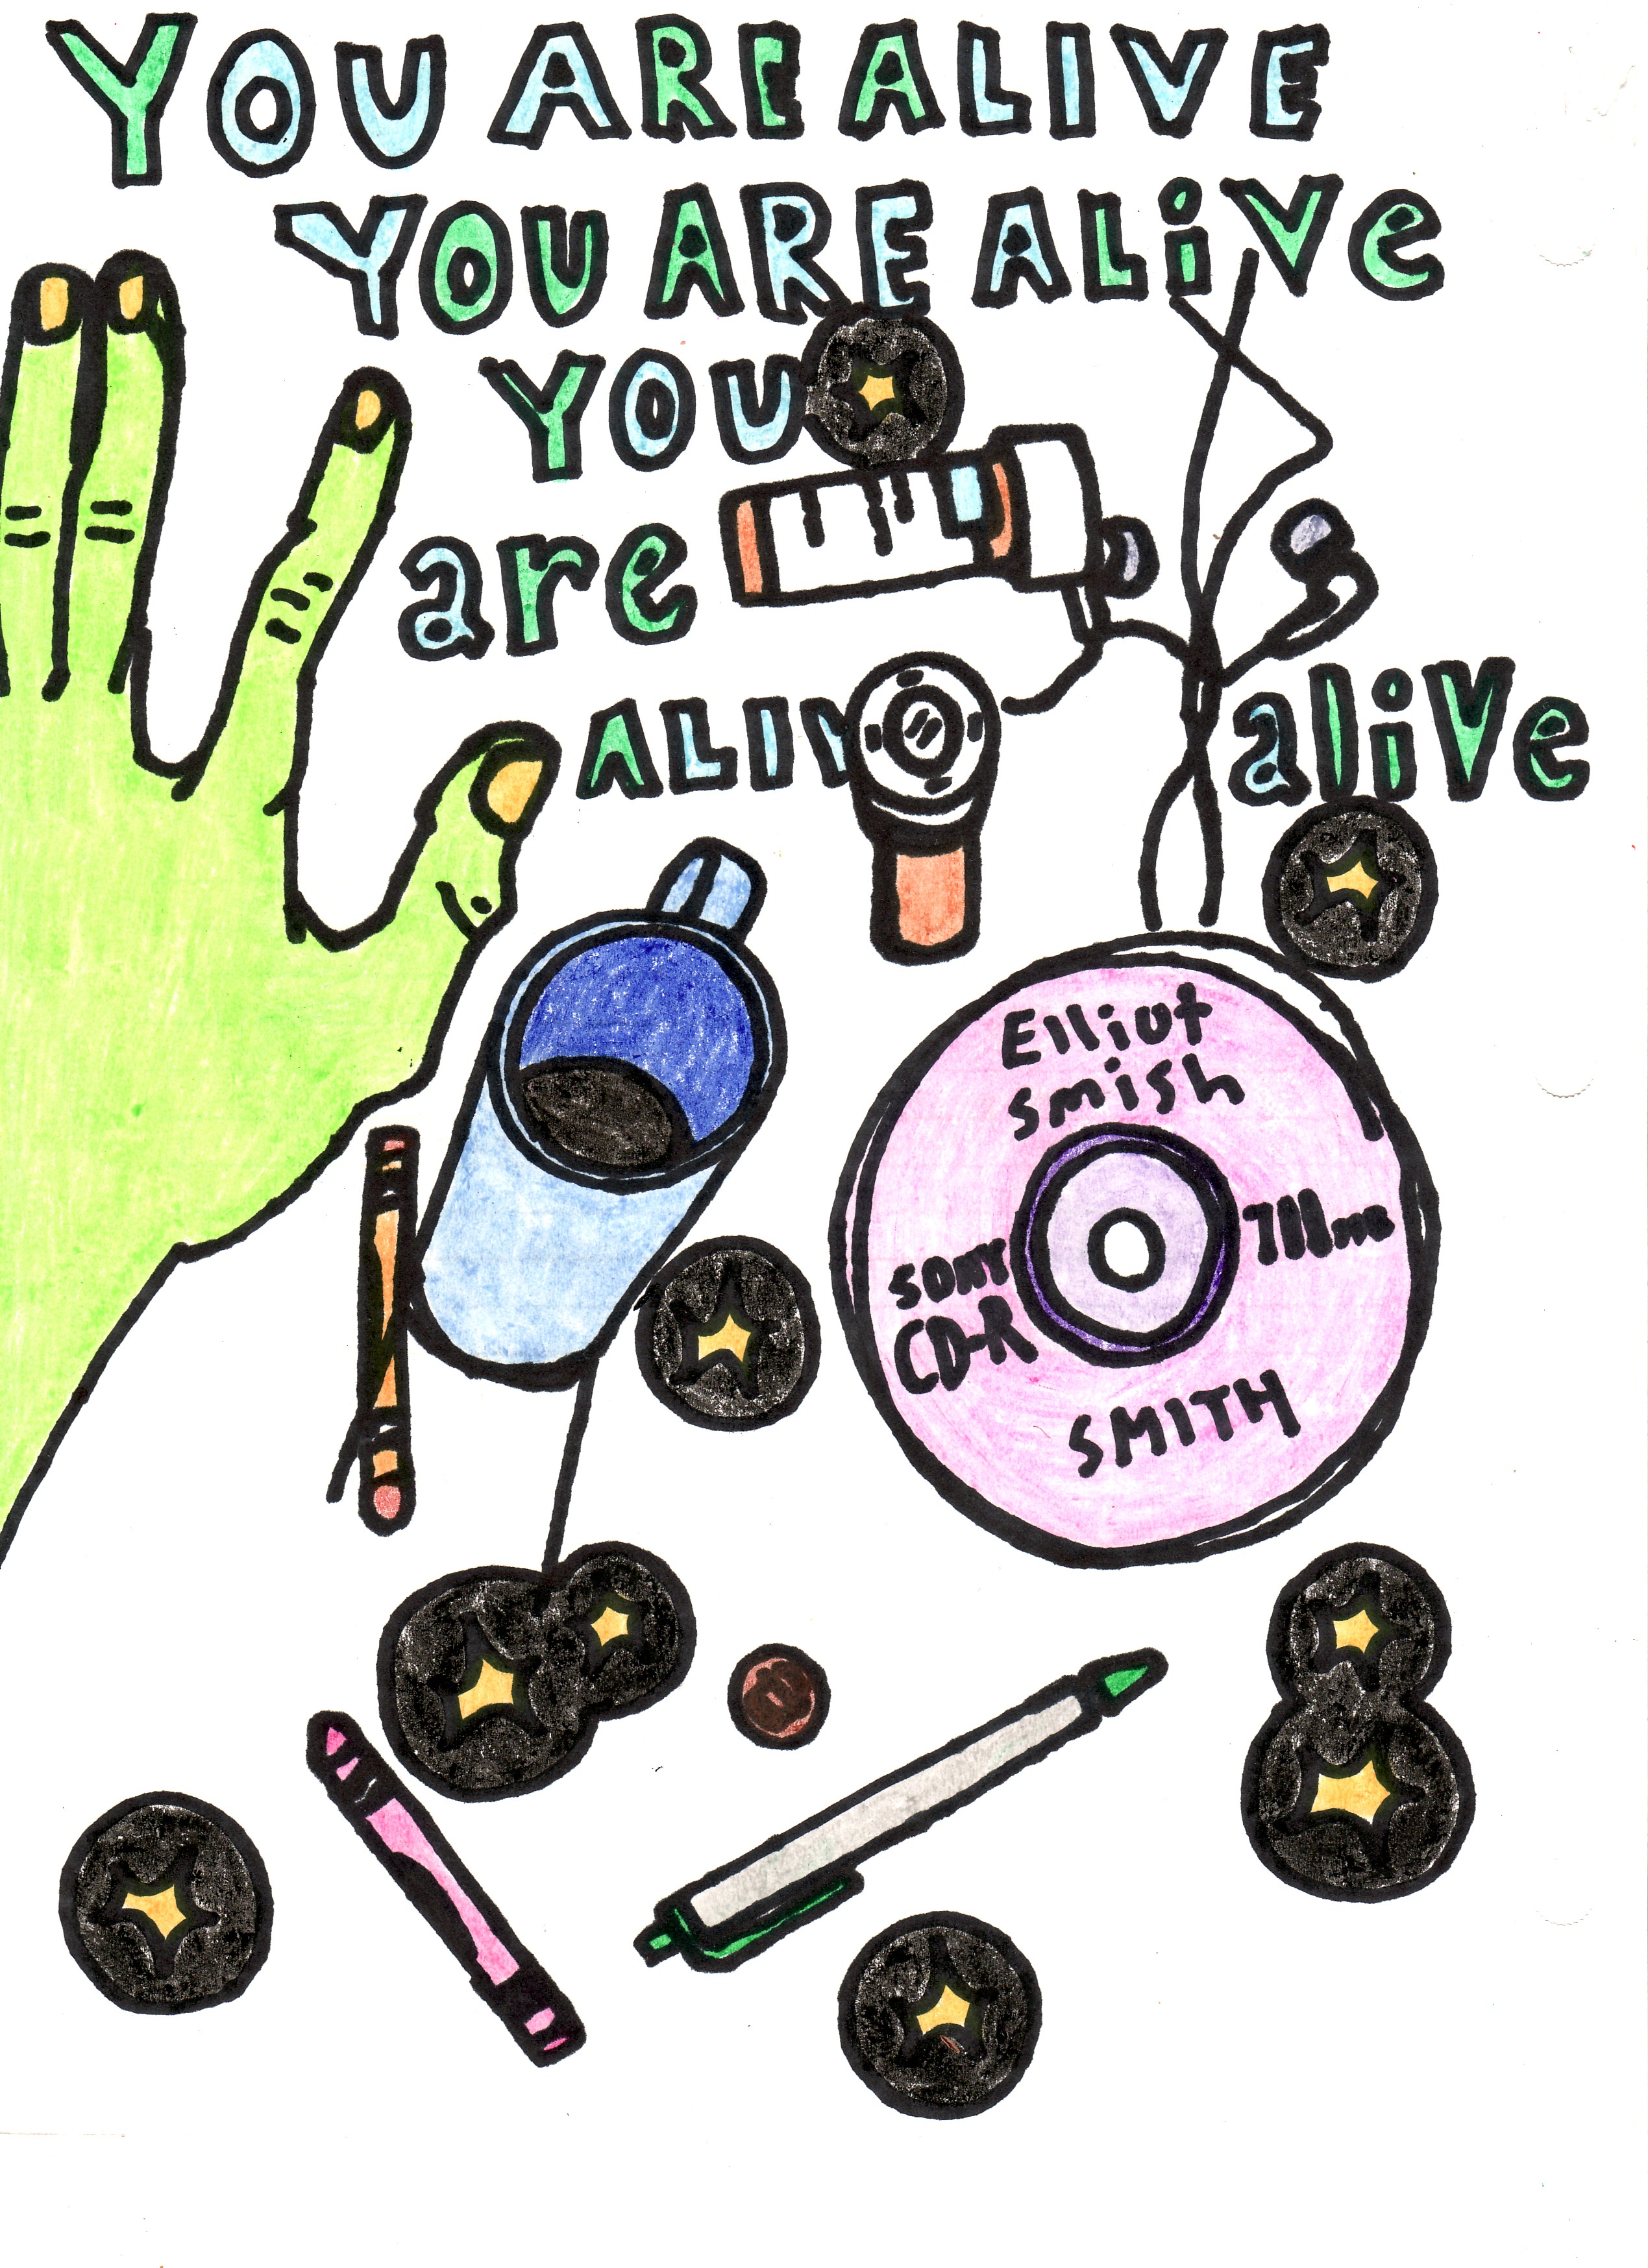 YOU ARE ALIVE
YOU ARE ALiVe
YOU
are
ALIV
alive
Elliot
smish
SONY
CD-R
SMITH